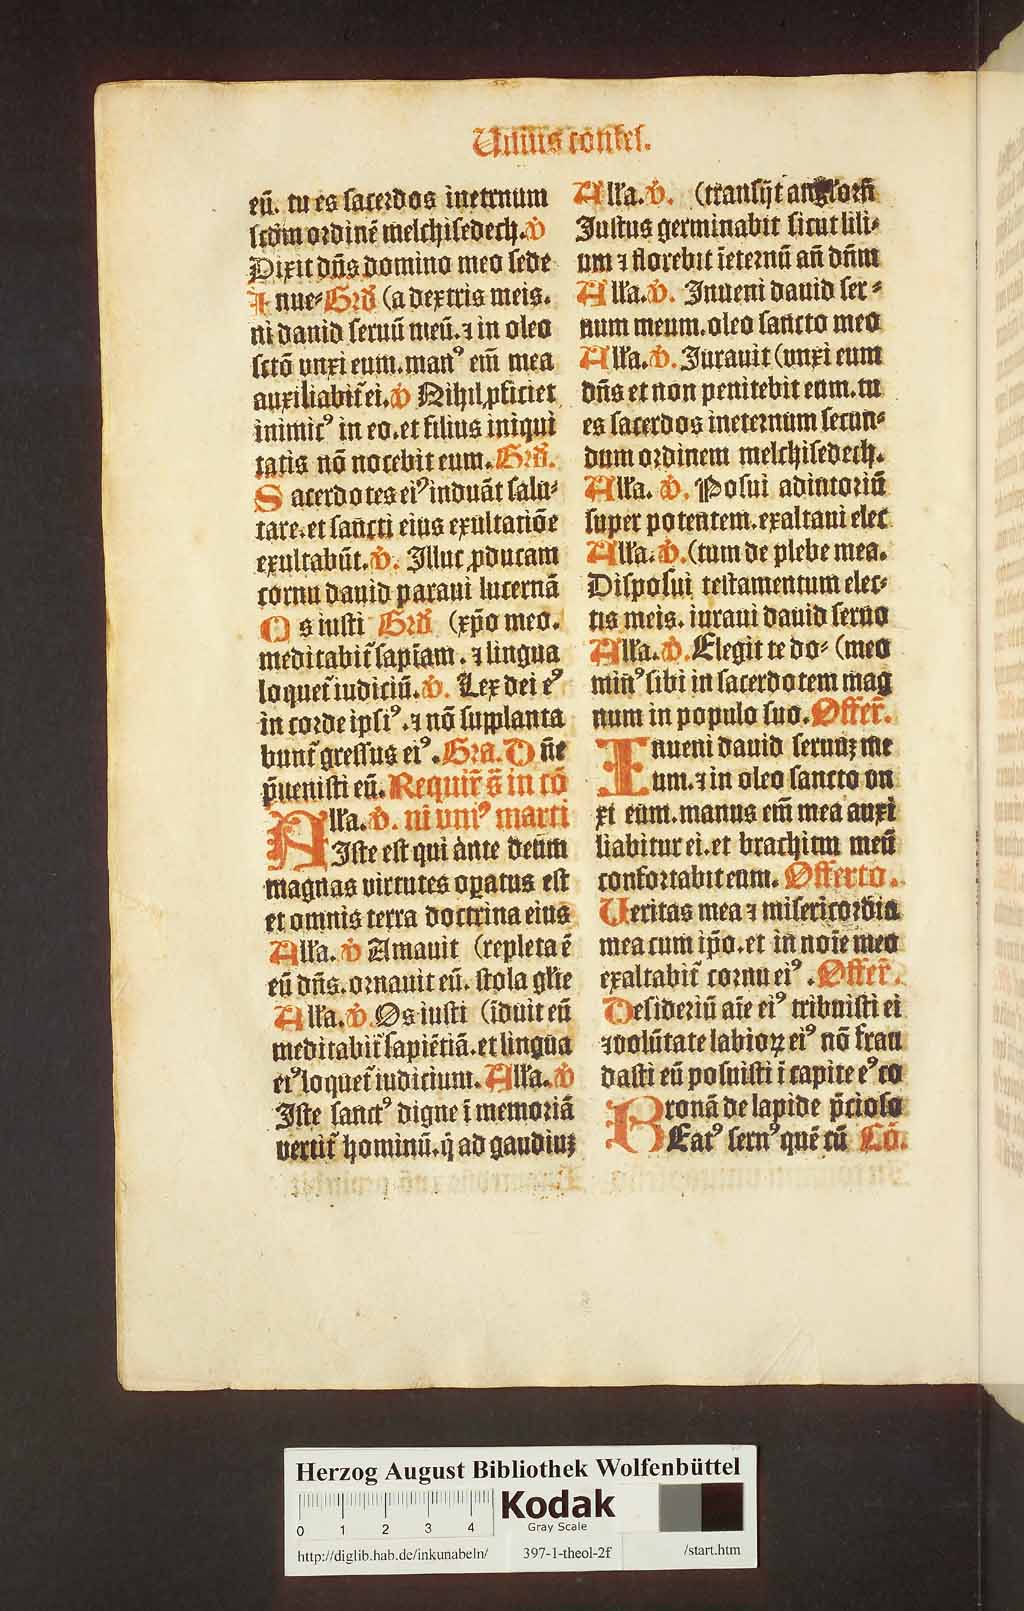 Unius confes.
eū. tu es sacerdos inetrnum
scdm ordinē melchisedech. ꝟ
Dixit dn̄s domino meo sede
I nue⸗ Grd̄ (a dextris meis.
ni dauid seruū meū. ⁊ in oleo
sctō vnxi eum. manꝰ em̄ mea
auxiliabit᷑ ei. ꝟ Nihil ꝓficiet
inimicꝰ in eo. et filius iniqui
tatis nō nocebit eum. Grd̄.
S acerdotes eiꝰ induāt salu⸗
tare. et sancti eius exultatiōe
exultabūt. ꝟ. Illuc ꝓducam
cornu dauid paraui lucernā
O s iusti Grd̄ (xp̄o meo.
meditabit᷑ sapīam. ⁊ lingua
loquet᷑ iudiciū. ꝟ. Lex dei eꝰ
in corde ipsiꝰ. ⁊ nō supplanta
bunt᷑ gressus eiꝰ. Gra. D n̄e
p̄uenisti eū. Requir᷑ s̄ in cō
Alla. ꝟ. ni vniꝰ marti
Iste est qui ante deum
magnas virtutes oꝑatus est
et omnis terra doctrina eius
Alla. ꝟ Amauit (repleta ē
eū dn̄s. ornauit eū. stola glīe
Alla. ꝟ. Os iusti (īduit eū
meditabit᷑ sapiētiā. et lingua
eiꝰ loquet᷑ iudicium. Alla. ꝟ
Iste sanctꝰ digne ī memoriā
vertit᷑ hominū. q̇ ad gaudiuꝫ
Alla. ꝟ. (transijt anglorū
Iustus germinabit sicut lili⸗
um ⁊ florebit īeternū an̄ dn̄m
Alla. ꝟ. Inueni dauid ser⸗
uum meum. oleo sancto meo
Alla. ꝟ. Iurauit (vnxi eum
dn̄s et non penitebit eum. tu
es sacerdos ineternum secun⸗
dum ordinem melchisedech.
Alla. ꝟ. Posui adiutoriū
super potentem. exaltaui elec
Alla. ꝟ. (tum de plebe mea.
Disposui testamentum elec⸗
tis meis. iuraui dauid seruo
Alla. ꝟ. Elegit te do⸗ (meo
minꝰ sibi in sacerdotem mag
num in populo suo. Offer᷑.
Inueni dauid seruuꝫ me
um. ⁊ in oleo sancto vn
xi eum. manus em̄ mea auxi
liabitur ei. et brachium meū
confortabit eum. Offerto.
Ueritas mea ⁊ misericordia
mea cum ip̄o. et in noīe meo
exaltabit᷑ cornu eiꝰ. Offer᷑.
Desideriū aīe eiꝰ tribuisti ei
⁊ volūtate labioꝝ eiꝰ nō frau
dasti eū posuisti ī capite eꝰ co
ronā de lapide p̄cioso
BEatꝰ seruꝰ quē cū Cō.
Herzog August Bibliothek Wolfenbüttel
0 1 2 3 4
Kodak
Gray Scale
http://diglib.hab.de/inkunabeln/ 397-1-theol-2f /start.htm